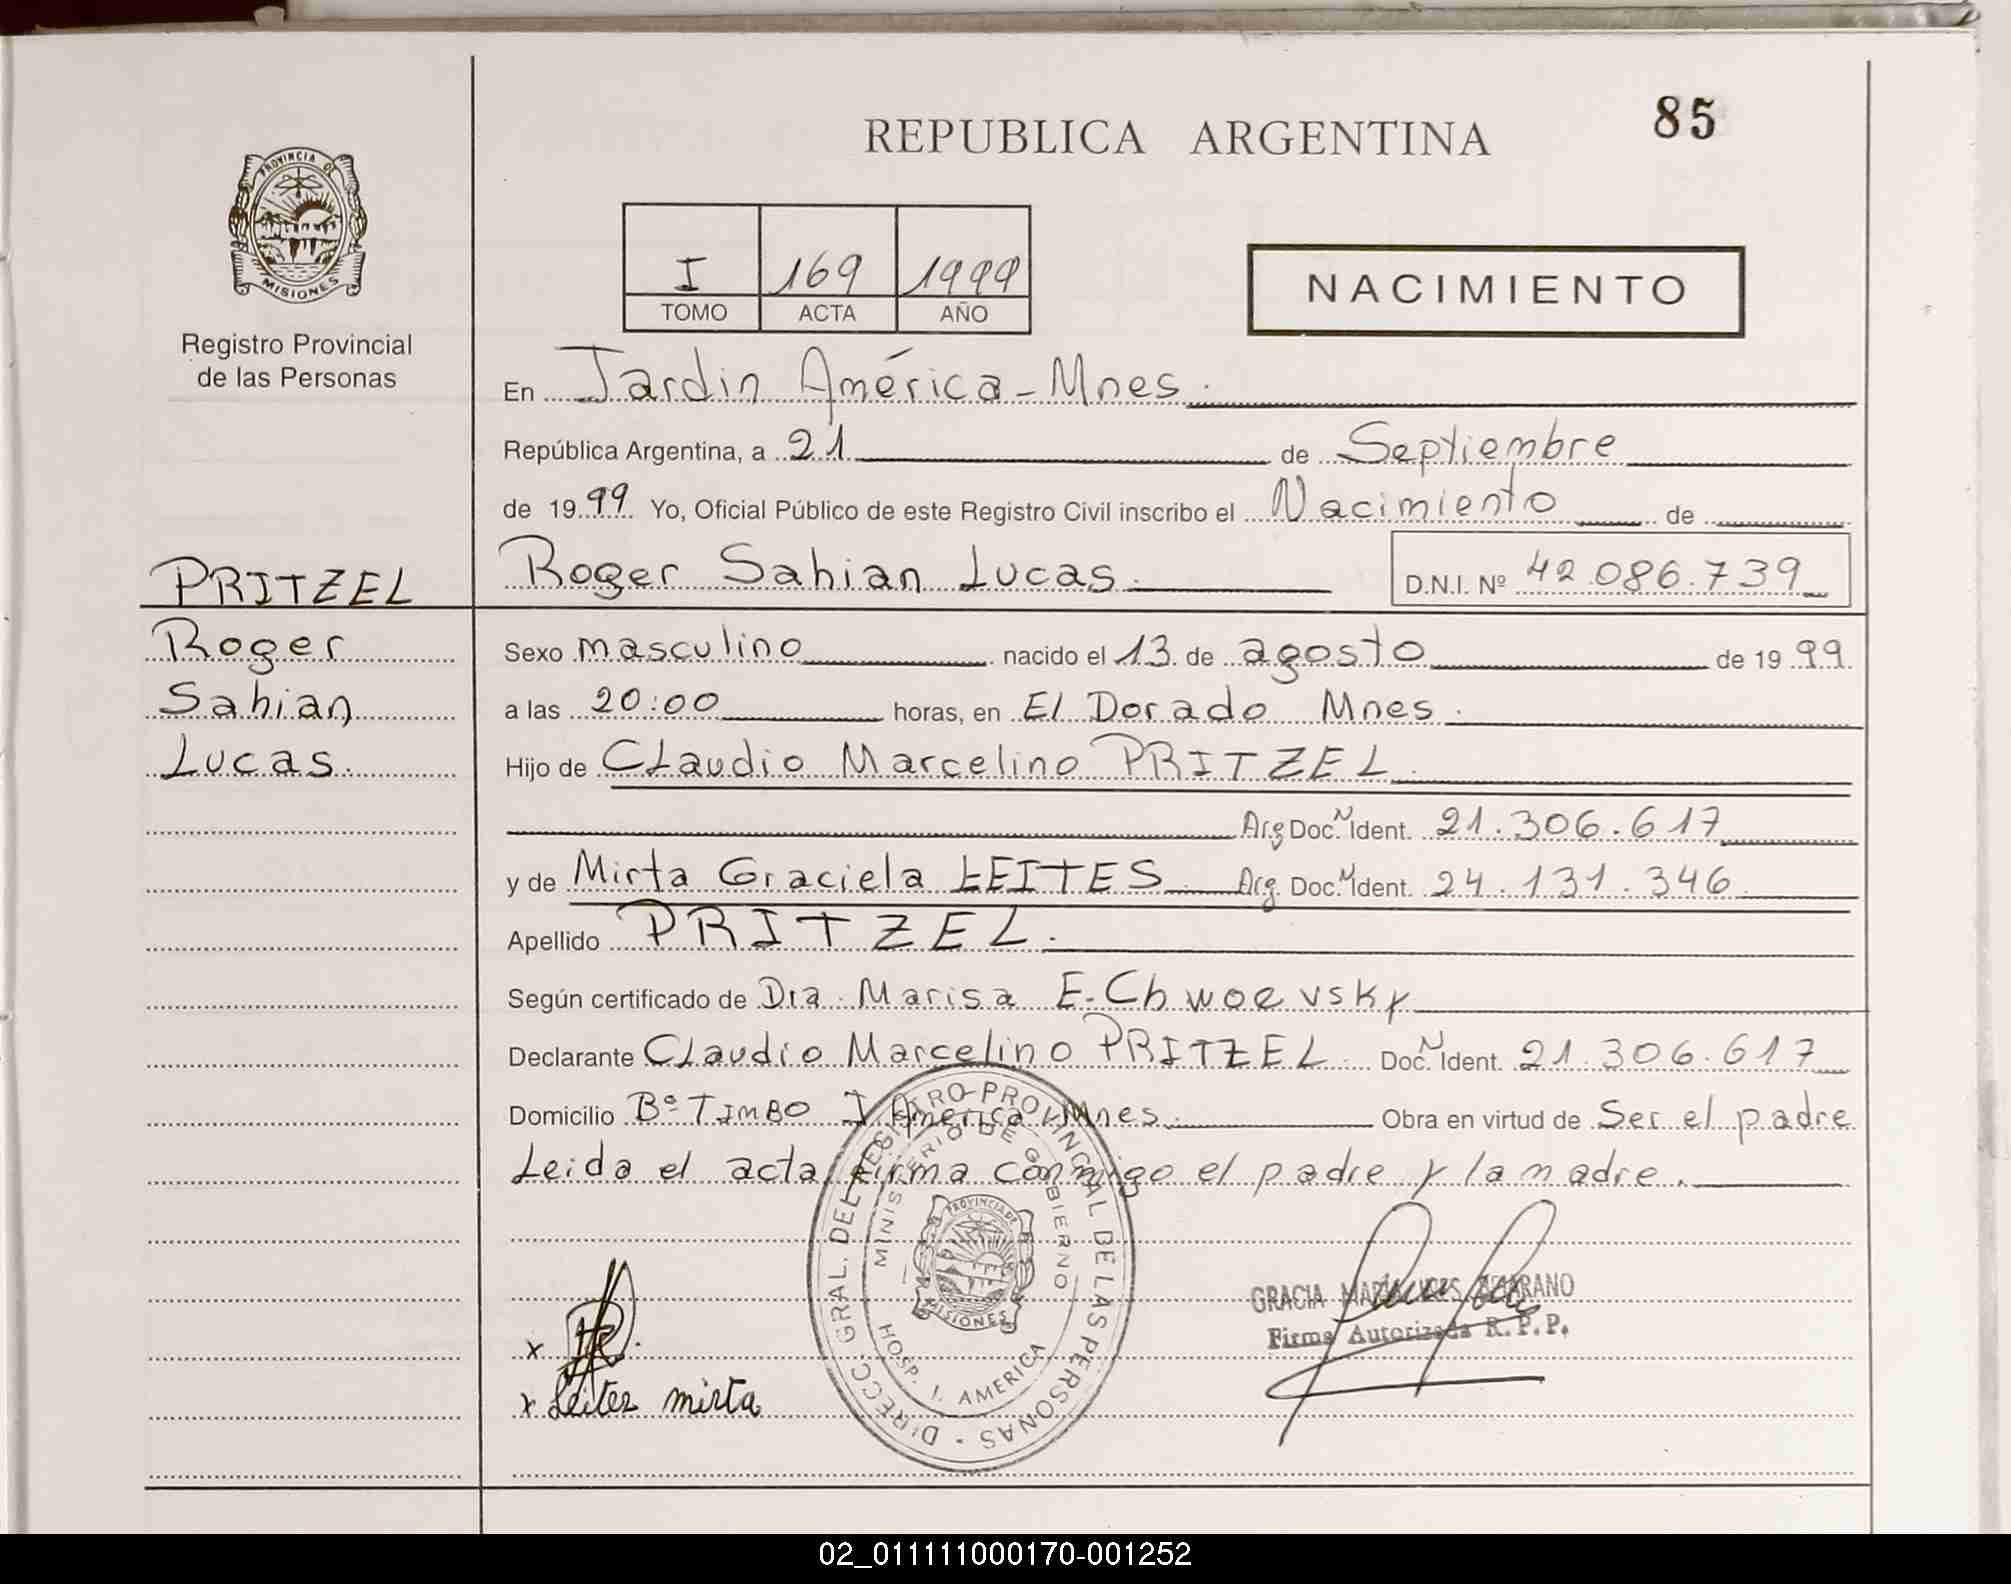 85
REPUBLICA ARGENTINA
PROVINCIA DE
MISIONES
Registro Provincial
de las Personas
I 169 1999
TOMO ACTA AÑO
NACIMIENTO
En Jardin América - Mnes.
República Argentina, a 21 de Septiembre
de 1999 Yo, Oficial Público de este Registro Civil inscribo el Nacimiento de
PRITZEL
Roger Sahian Lucas.
D.N.I. Nº 42.086.739
Roger
Sahian
Lucas.
Sexo masculino nacido el 13 de agosto de 1999
a las 20:00 horas, en El Dorado Mnes.
Hijo de CLaudio Marcelino PRITZEL
Arg Doc. N Ident. 21.306.617
y de Mirta Graciela LEITES Arg. Doc. N Ident. 24.131.346
Apellido PRITZEL.
Según certificado de Dra. Marisa E.
Declarante CLaudio Marcelino PRITZEL. Doc. N Ident. 21.306.617
Domicilio Bº TIMBO J América Mnes. Obra en virtud de Ser el padre
Leida el acta, firma conmigo el padre y la madre.
DIRECC. GRAL. DEL REGISTRO PROVINCIAL DE LAS PERSONAS
MINISTERIO DE GOBIERNO
PROVINCIA DE
MISIONES
HOSP. J. AMERICA
GRACIA
Firma Autorizada R.P.P.
x
x Leites mirta
02_011111000170-001252